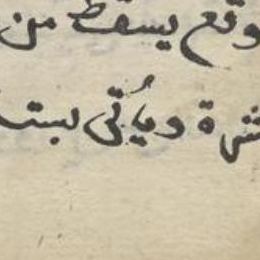 وقع يسقط من
شرة ويأتى بست